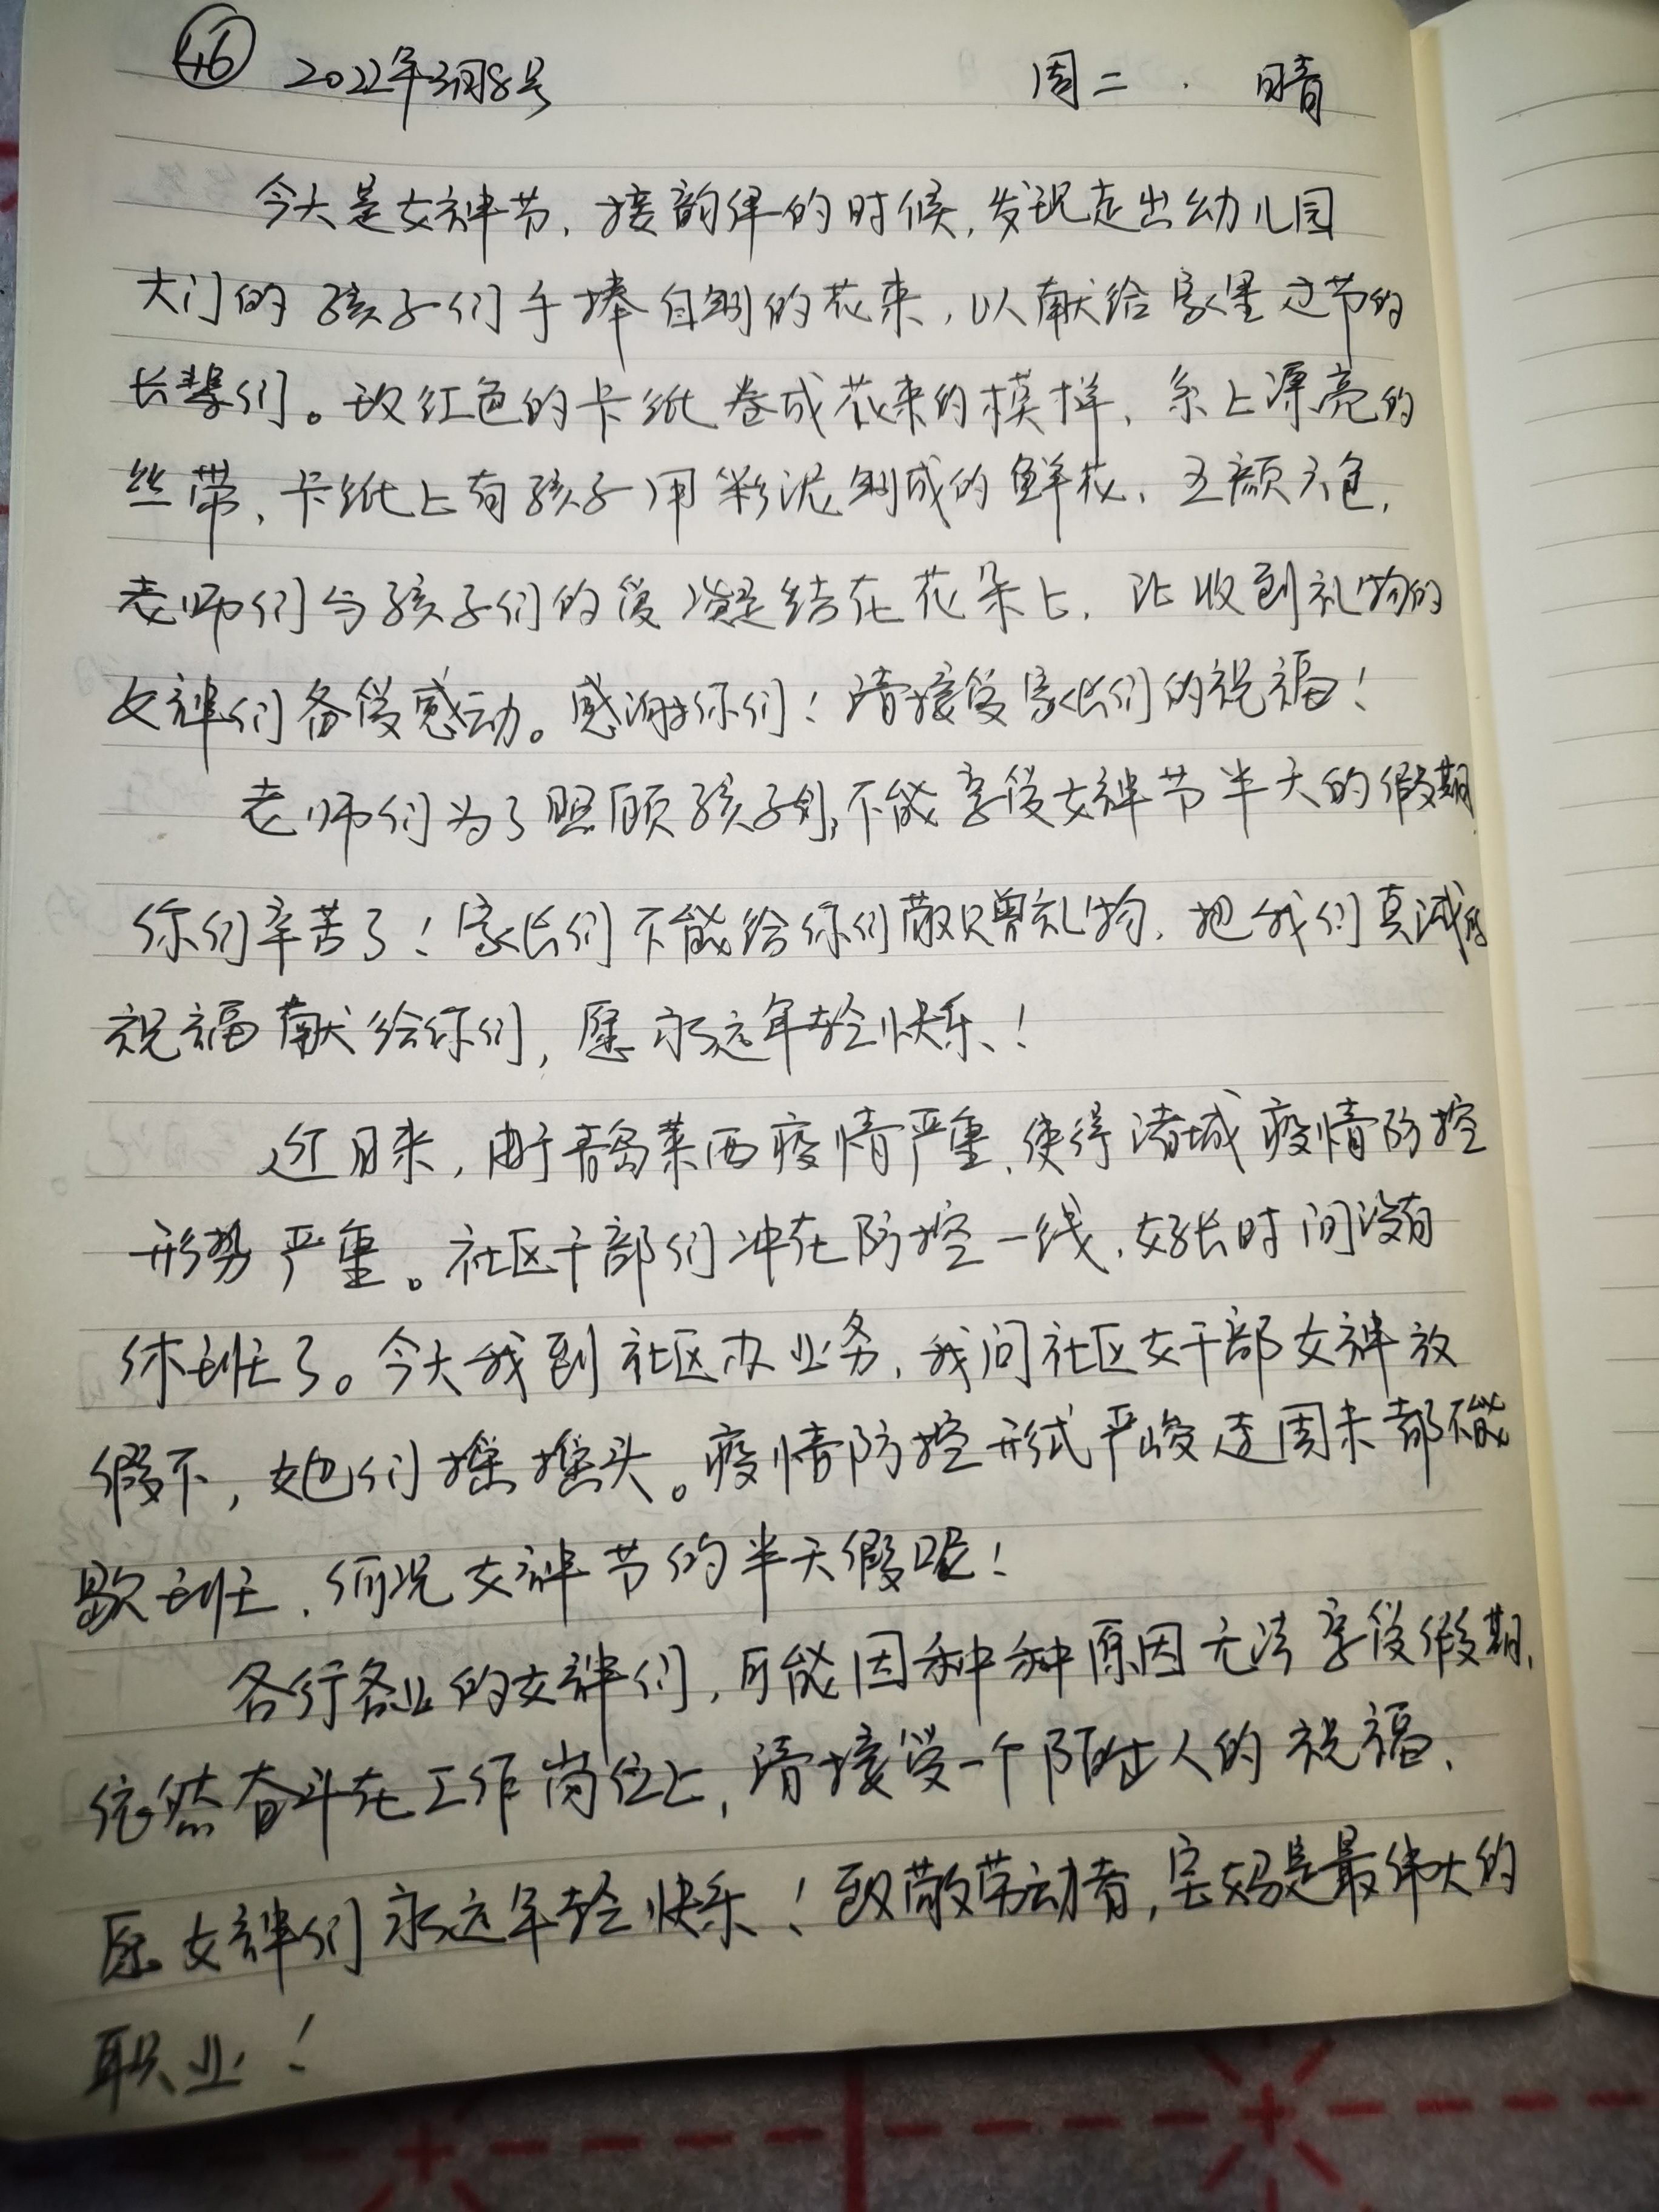 46 2022年3月8号 周二 · 晴
今天是女神节，接韵伊的时候，发现走出幼儿园
大门的孩子们手捧自制的花束，以献给家里过节的
长辈们。玫红色的卡纸卷成花束的模样，系上漂亮的
丝带，卡纸上有孩子用彩泥制成的鲜花，五颜六色，
老师们与孩子们的爱凝结在花朵上，让收到礼物的
女神们备受感动。感谢你们！请接受家长们的祝福！
老师们为了照顾孩子们，不能享受女神节半天的假期，
你们辛苦了！家长们不能给你们敬赠礼物，把我们真诚的
祝福献给你们，愿永远年轻快乐！
近日来，由于青岛莱西疫情严重，使得诸城疫情防控
形势严重。社区干部们冲在防控一线，好长时间没有
休班了。今天我到社区办业务，我问社区女干部女神放
假不，她们摇摇头。疫情防控形式严峻连周末都不能
歇班，何况女神节的半天假呢！
各行各业的女神们，可能因种种原因无法享受假期，
依然奋斗在工作岗位上，请接受一个陌生人的祝福，
愿女神们永远年轻快乐！致敬劳动者，宝妈是最伟大的
职业！